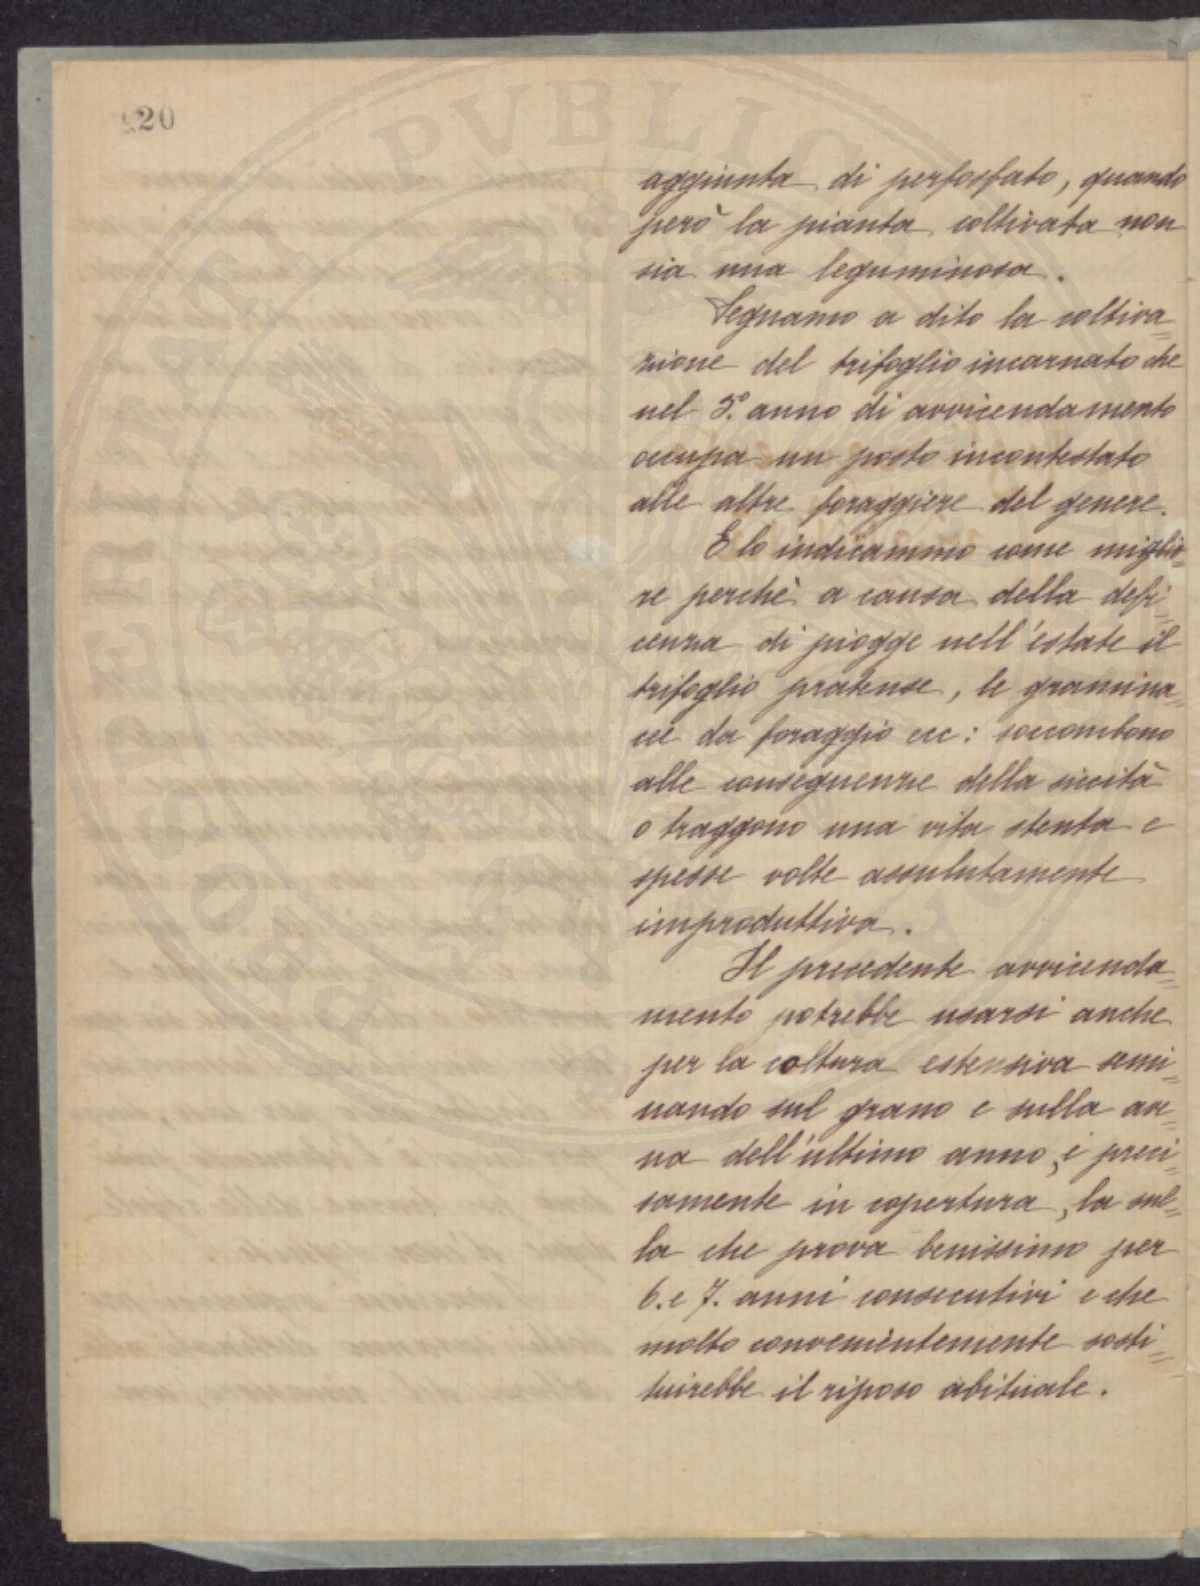 20
aggiunta di perfosfato, quando
però la pianta coltivata non
sia una leguminosa.
Segnamo a dito la coltiva=
zione del trifoglio incarnato che
nel 5.° anno di avvicendamento
occupa un posto incontestato
alle altre foraggiere del genere.
E lo indicammo come miglio=
re perchè a causa della defi=
cenza di piogge nell'estate il
trifoglio pratense, le gramina=
cee da foraggio ecc: soccombono
alle conseguenze della siccità
o traggono una vita stenta e
spesse volte assulutamente
improduttiva.
Il precedente avvicenda=
mento potrebbe usarsi anche
per la coltura estensiva semi=
nando sul grano e sulla ave=
na dell'ultimo anno, e preci=
samente in copertura, la sul=
la che prova benissimo per
6. e 7. anni consecutivi e che
molto convenientemente sosti=
tuirebbe il riposo abituale.
PROPRIETATI PVBLICAE